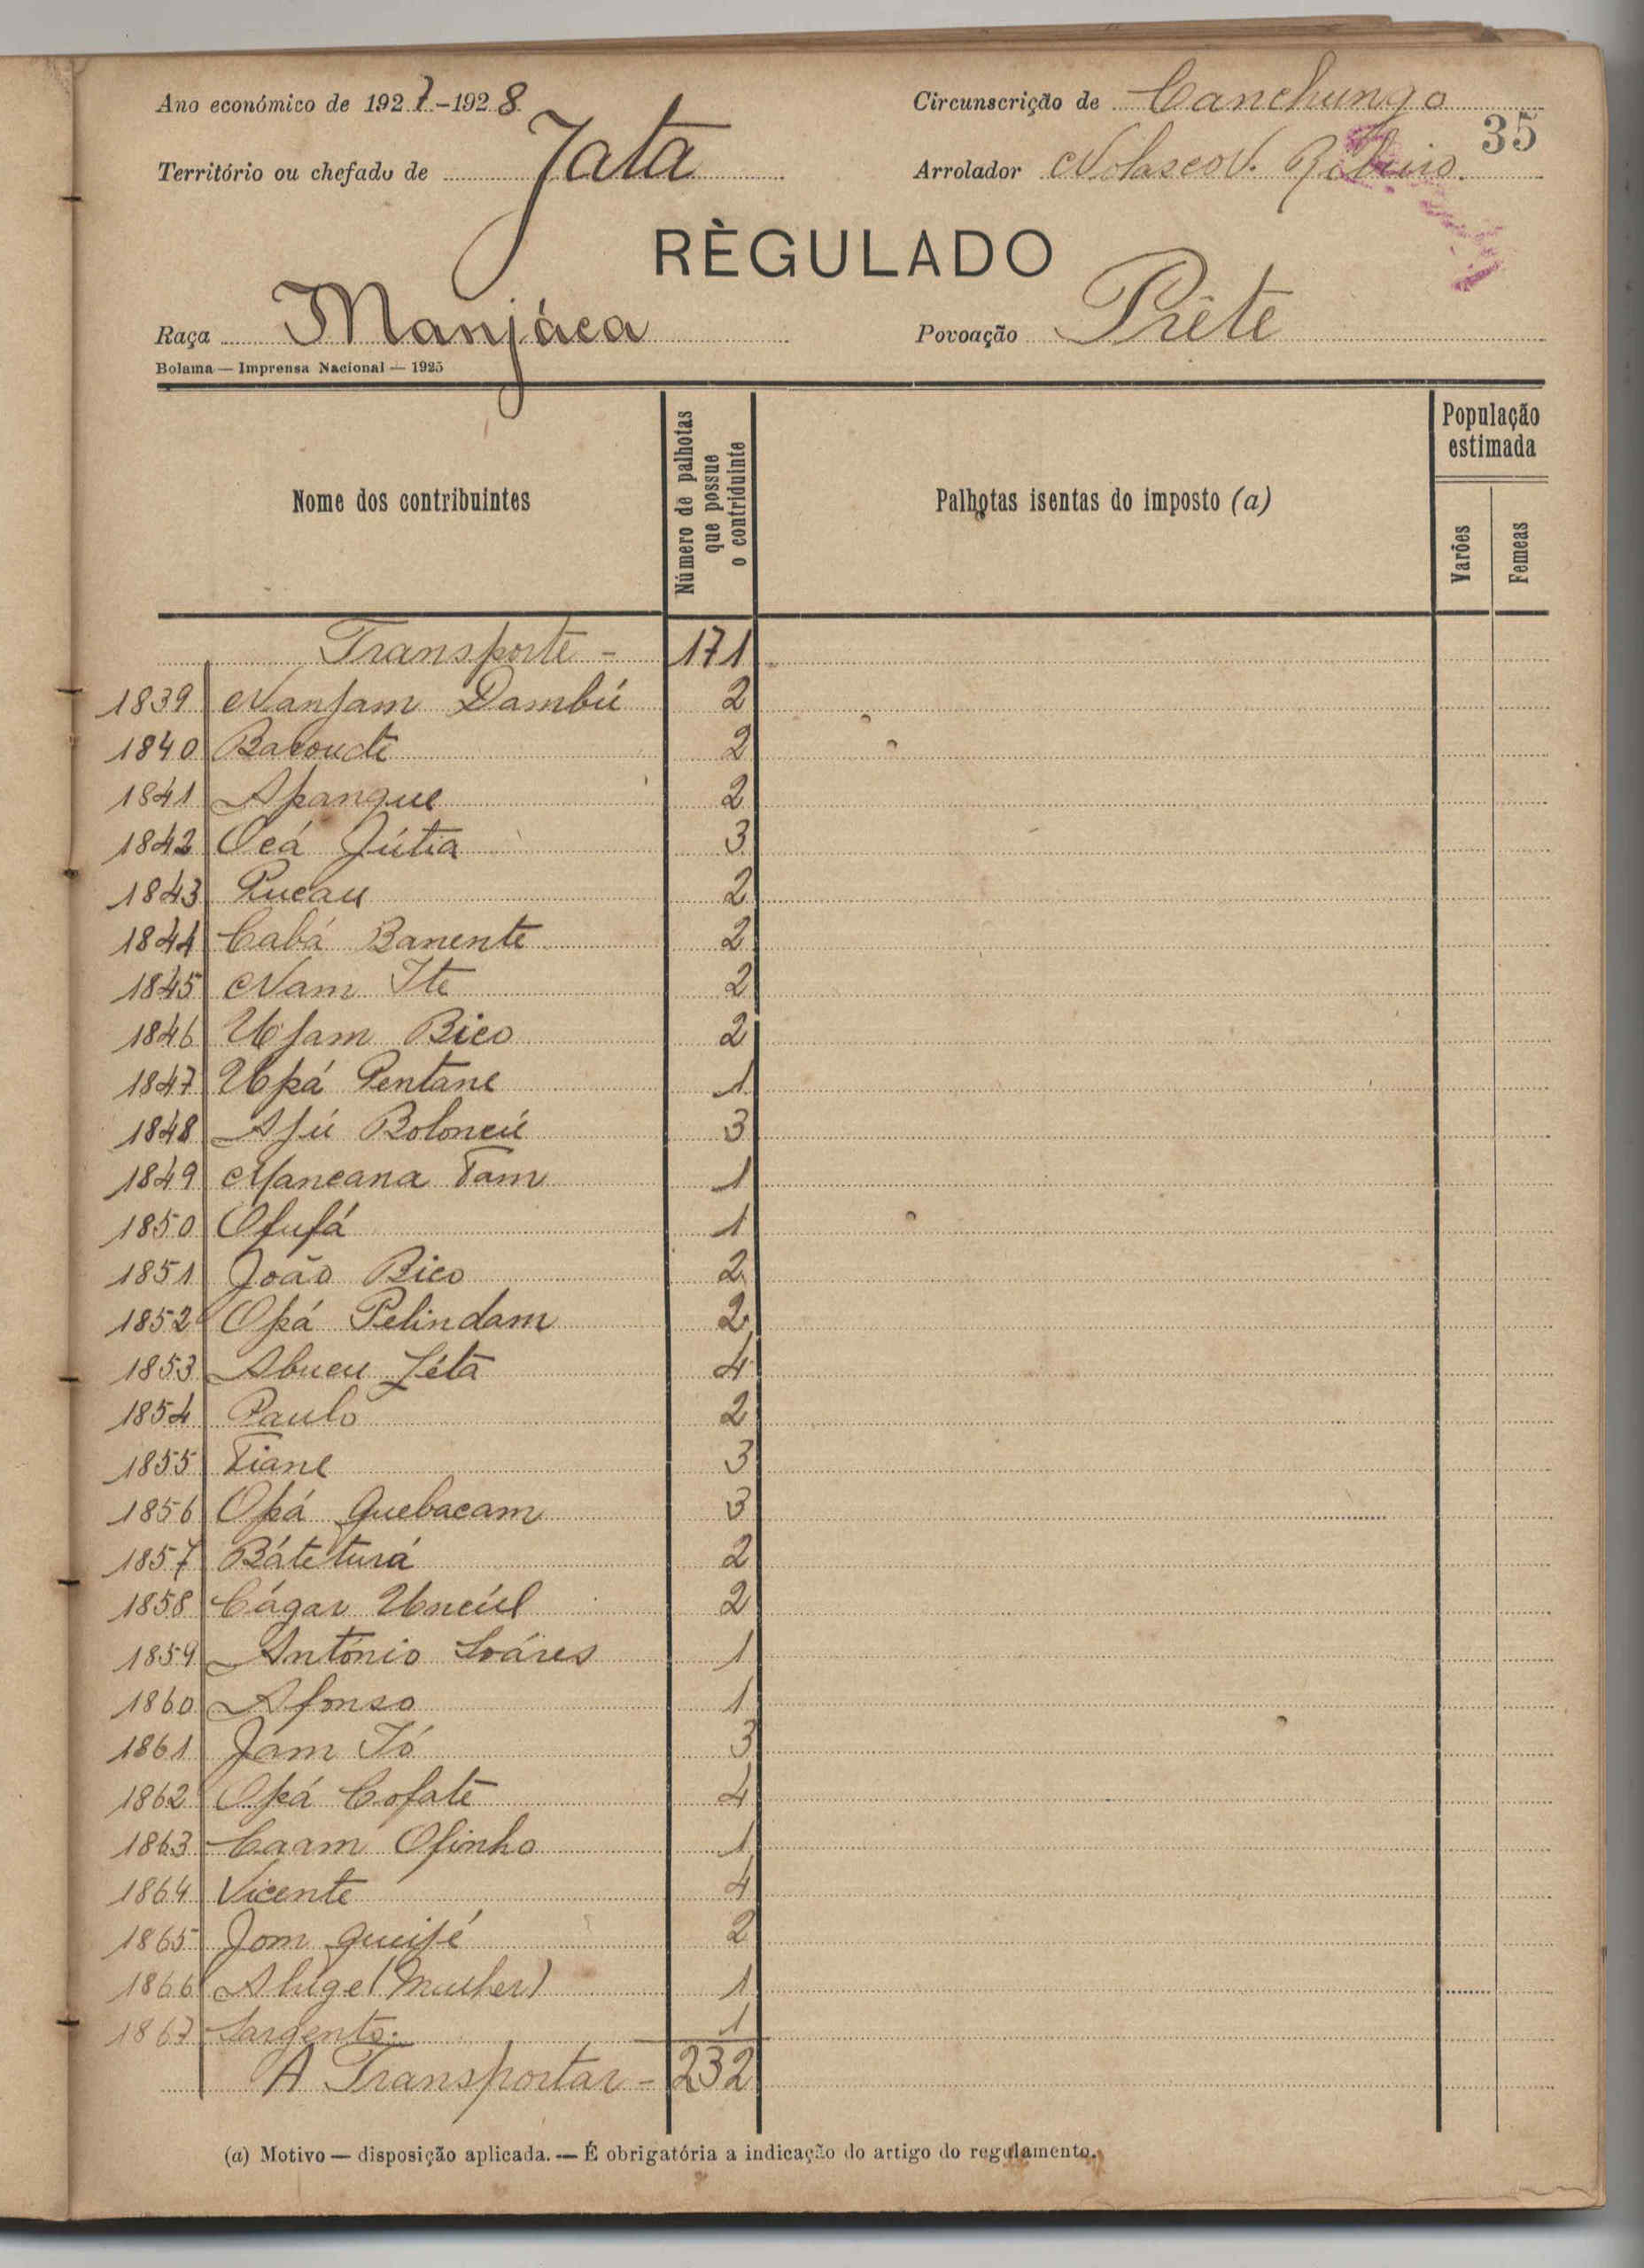 Ano económico de 1927-1928
Circunscrição de Canchungo
35
Território ou chefado de Jata
Arrolador Nolasco V. Ribeiro.
RÈGULADO
Raça Manjáca
Povoação Prête
Bolama — Imprensa Nacional — 1925
Nome dos contribuintes
Número de palhotas que possue o contriduinte
Palhotas isentas do imposto (a)
População estimada
Varões
Femeas
Transporte - 171
1839 Nanjam Dambú 2
1840 Baroudi 2
1841 Apangue 2
1842 Ocá Jútia 3
1843 Pucau 2
1844 Cabá Banente 2
1845 Nam Ite 2
1846 Ujam Bico 2
1847 Upá Pentane 1
1848 Ajú Boloncú 3
1849 Mancana Tam 1
1850 Ofufá 1
1851 João Bico 2
1852 Opá Pelindam 2
1853 Abucu Jéta 4
1854 Paulo 2
1855 Tiane 3
1856 Opá Quebacam 3
1857 Báteturá 2
1858 Cágar Uncúl 2
1859 António Soáres 1
1860 Afonso 1
1861 Jam Tó 3
1862 Opá Cofate 4
1863 Caam Ofinho 1
1864 Vicente 4
1865 Jom Queifé 2
1866 (Mulher) 1
1867 Sargento. 1
A Transportar - 232
(a) Motivo — disposição aplicada. — É obrigatória a indicação do artigo do regulamento.